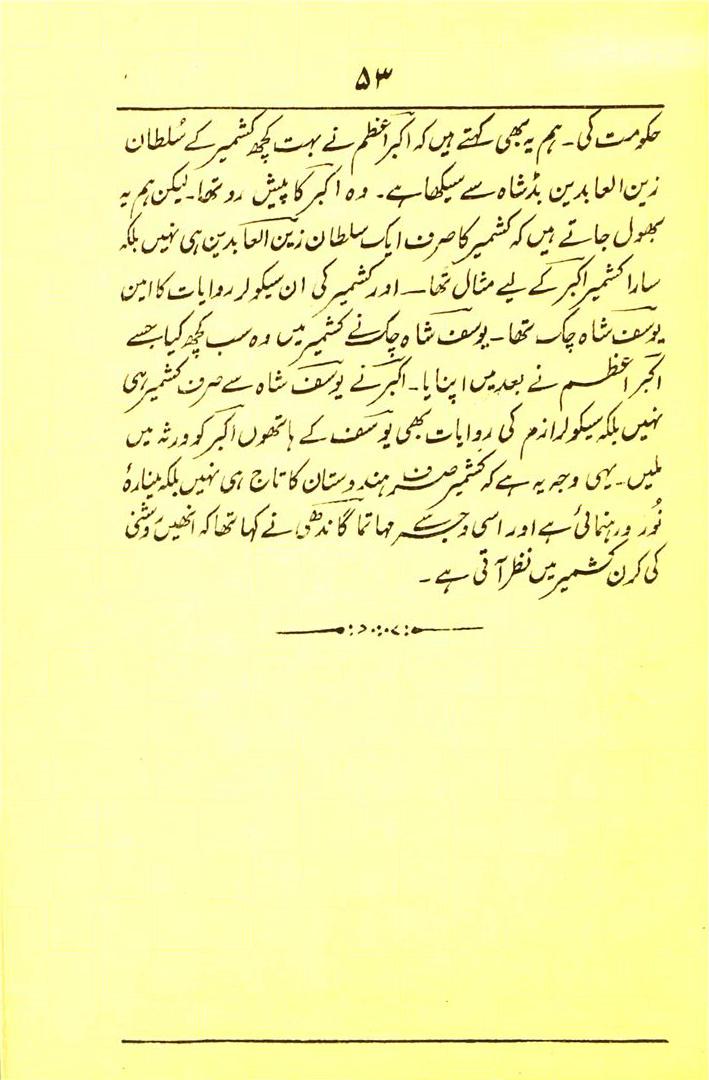 ۵۳
حکومت کی۔ ہم یہ بھی کہتے ہیں کہ اکبر اعظم نے بہت کچھ کشمیر کے سُلطان
زین العابدین بڈشاہ سے سیکھا ہے۔ وہ اکبر کا پیش رو تھا۔ لیکن ہم یہ
بھول جاتے ہیں کہ کشمیر کا صرف ایک سلطان زین العابدین ہی نہیں بلکہ
سارا کشمیر اکبر کے لیے مثال تھا۔ اور کشمیر کی ان سیکولر روایات کا امین
یوسف شاہ چک تھا۔ یوسف شاہ چک نے کشمیر میں وہ سب کچھ کیا جسے
اکبر اعظم نے بعد میں اپنایا۔ اکبر نے یوسف شاہ سے صرف کشمیر ہی
نہیں بلکہ سیکولرازم کی روایات بھی یوسف کے ہاتھوں اکبر کو ورثہ میں
ملیں۔ یہی وجہ یہ ہے کہ کشمیر صرف ہندوستان کا تاج ہی نہیں بلکہ مینارۂ
نُور و رہنمائی ہے اور اسی وجہ سے مہاتما گاندھی نے کہا تھا کہ انھیں روشنی
کی کرن کشمیر میں نظر آتی ہے۔